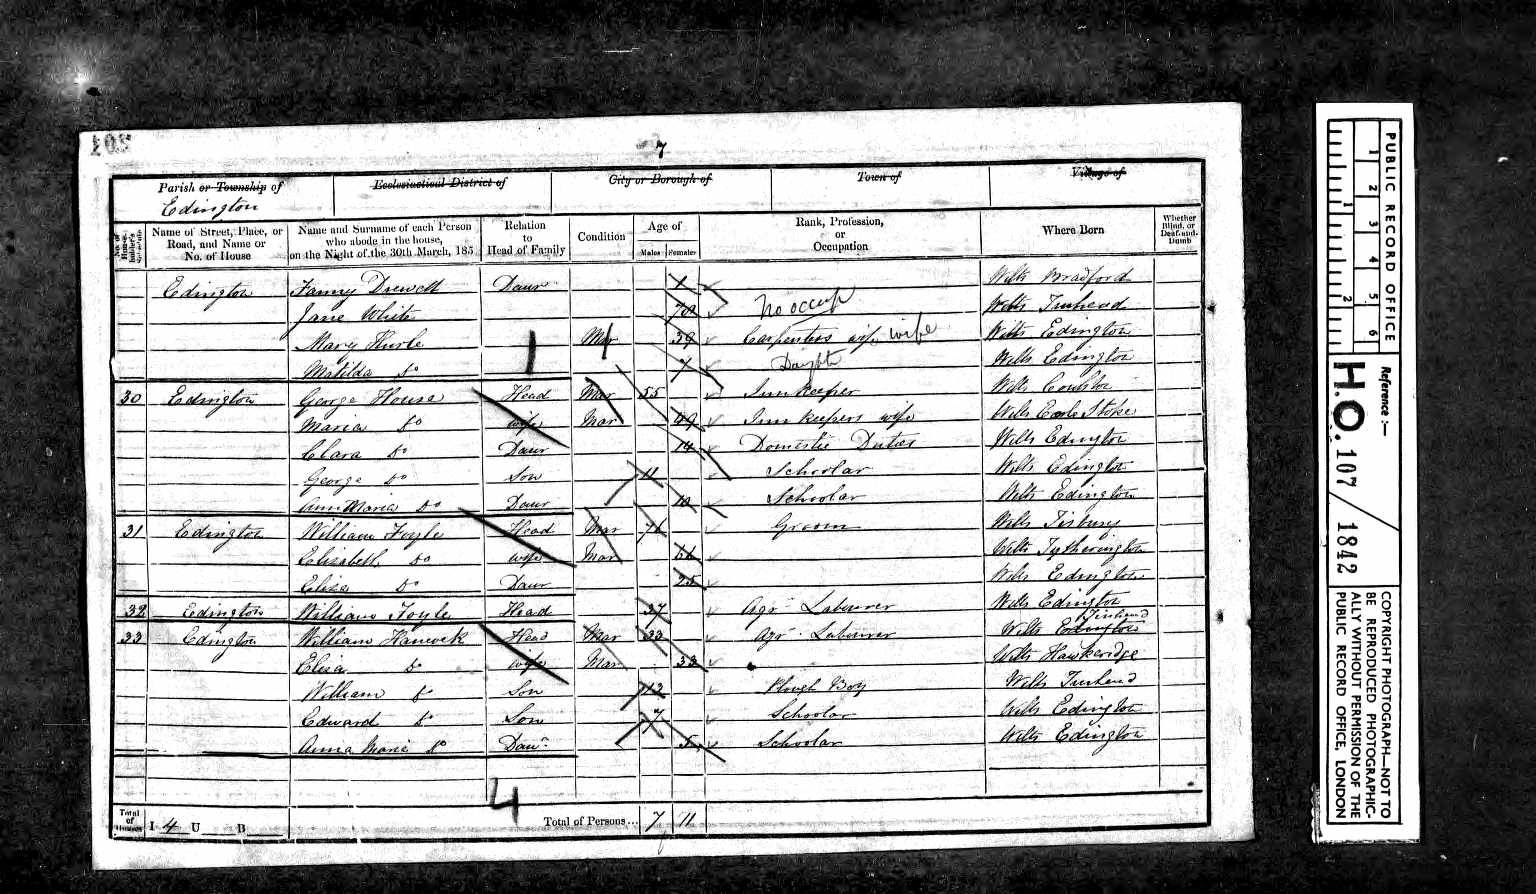 7
Parish or Township of
Edington
Ecclesiastical District of
City or Borough of
Town of
Village of
No. of House-holder's Schedule
Name of Street, Place, or Road, and Name or No. of House
Name and Surname of each Person who abode in the house, on the Night of the 30th March, 185
Relation to Head of Family
Condition
Age of
Males Females
Rank, Profession, or Occupation
Where Born
Whether Blind, or Deaf-and-Dumb
Edington Fanny Drewett Daur 1 Wilts Bradford
Jane White No occup Wilts Tinhead
Mary Hurle Mar 39 Carpenters wife wife Wilts Edington
Matilda Do 7 Daught Wilts Edington
30 Edington George House Head Mar 55 Innkeeper Wilts Coulston
Maria Do wife Mar 49 Innkeepers wife Wilts Earle Stoke
Clara Do Daur 14 Domestic Duties Wilts Edington
George Do Son 11 Schoolar Wilts Edington
Ann Maria Do Daur 10 Schoolar Wilts Edington
31 Edington William Foyle Head Mar 71 Groom Wilts Tisbury
Elizabeth Do wife Mar Wilts Tytherington
Eliza Do Daur 25 Wilts Edington
32 Edington William Foyle Head 37 Agr Labourer Wilts Edington
33 Edington William Hancock Head Mar 33 Agr Labourer Wilts Edington Tinhead
Eliza Do wife Mar 33 Wilts Hawkeridge
William Do Son 12 Plough Boy Wilts Tinhead
Edward Do Son 7 Schoolar Wilts Edington
Anna Maria Do Daur 5 Schoolar Wilts Edington
4
Total of Houses I 4 U B
Total of Persons... 7 11
PUBLIC RECORD OFFICE
1 2 3 4 5 6
1 2
Reference:—
H.O. 107 / 1842
COPYRIGHT PHOTOGRAPH—NOT TO
BE REPRODUCED PHOTOGRAPHIC-
ALLY WITHOUT PERMISSION OF THE
PUBLIC RECORD OFFICE, LONDON